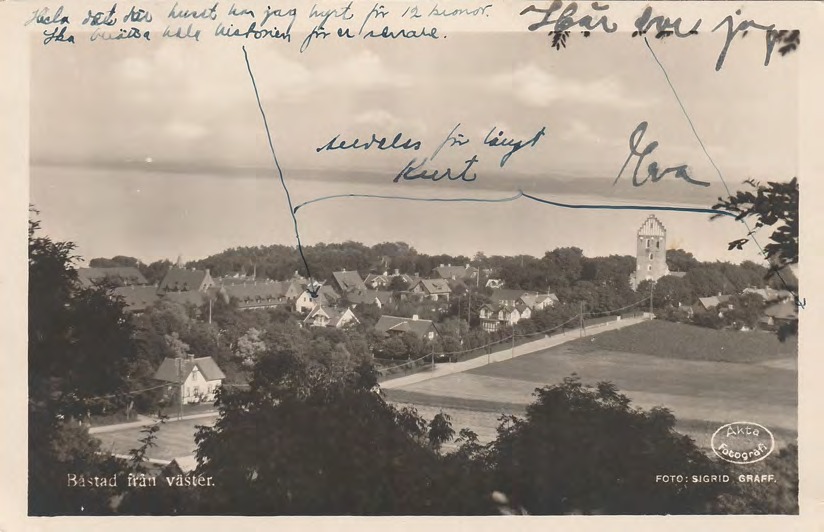 Hela det där huset har jag hyrt för 12 kronor.
Ska berätta hela historien för er senare.
Här bor jag
alldeles för långt
Kurt
Eva
Äkta
Fotografi
Båstad från väster.
FOTO: SIGRID GRAFF.